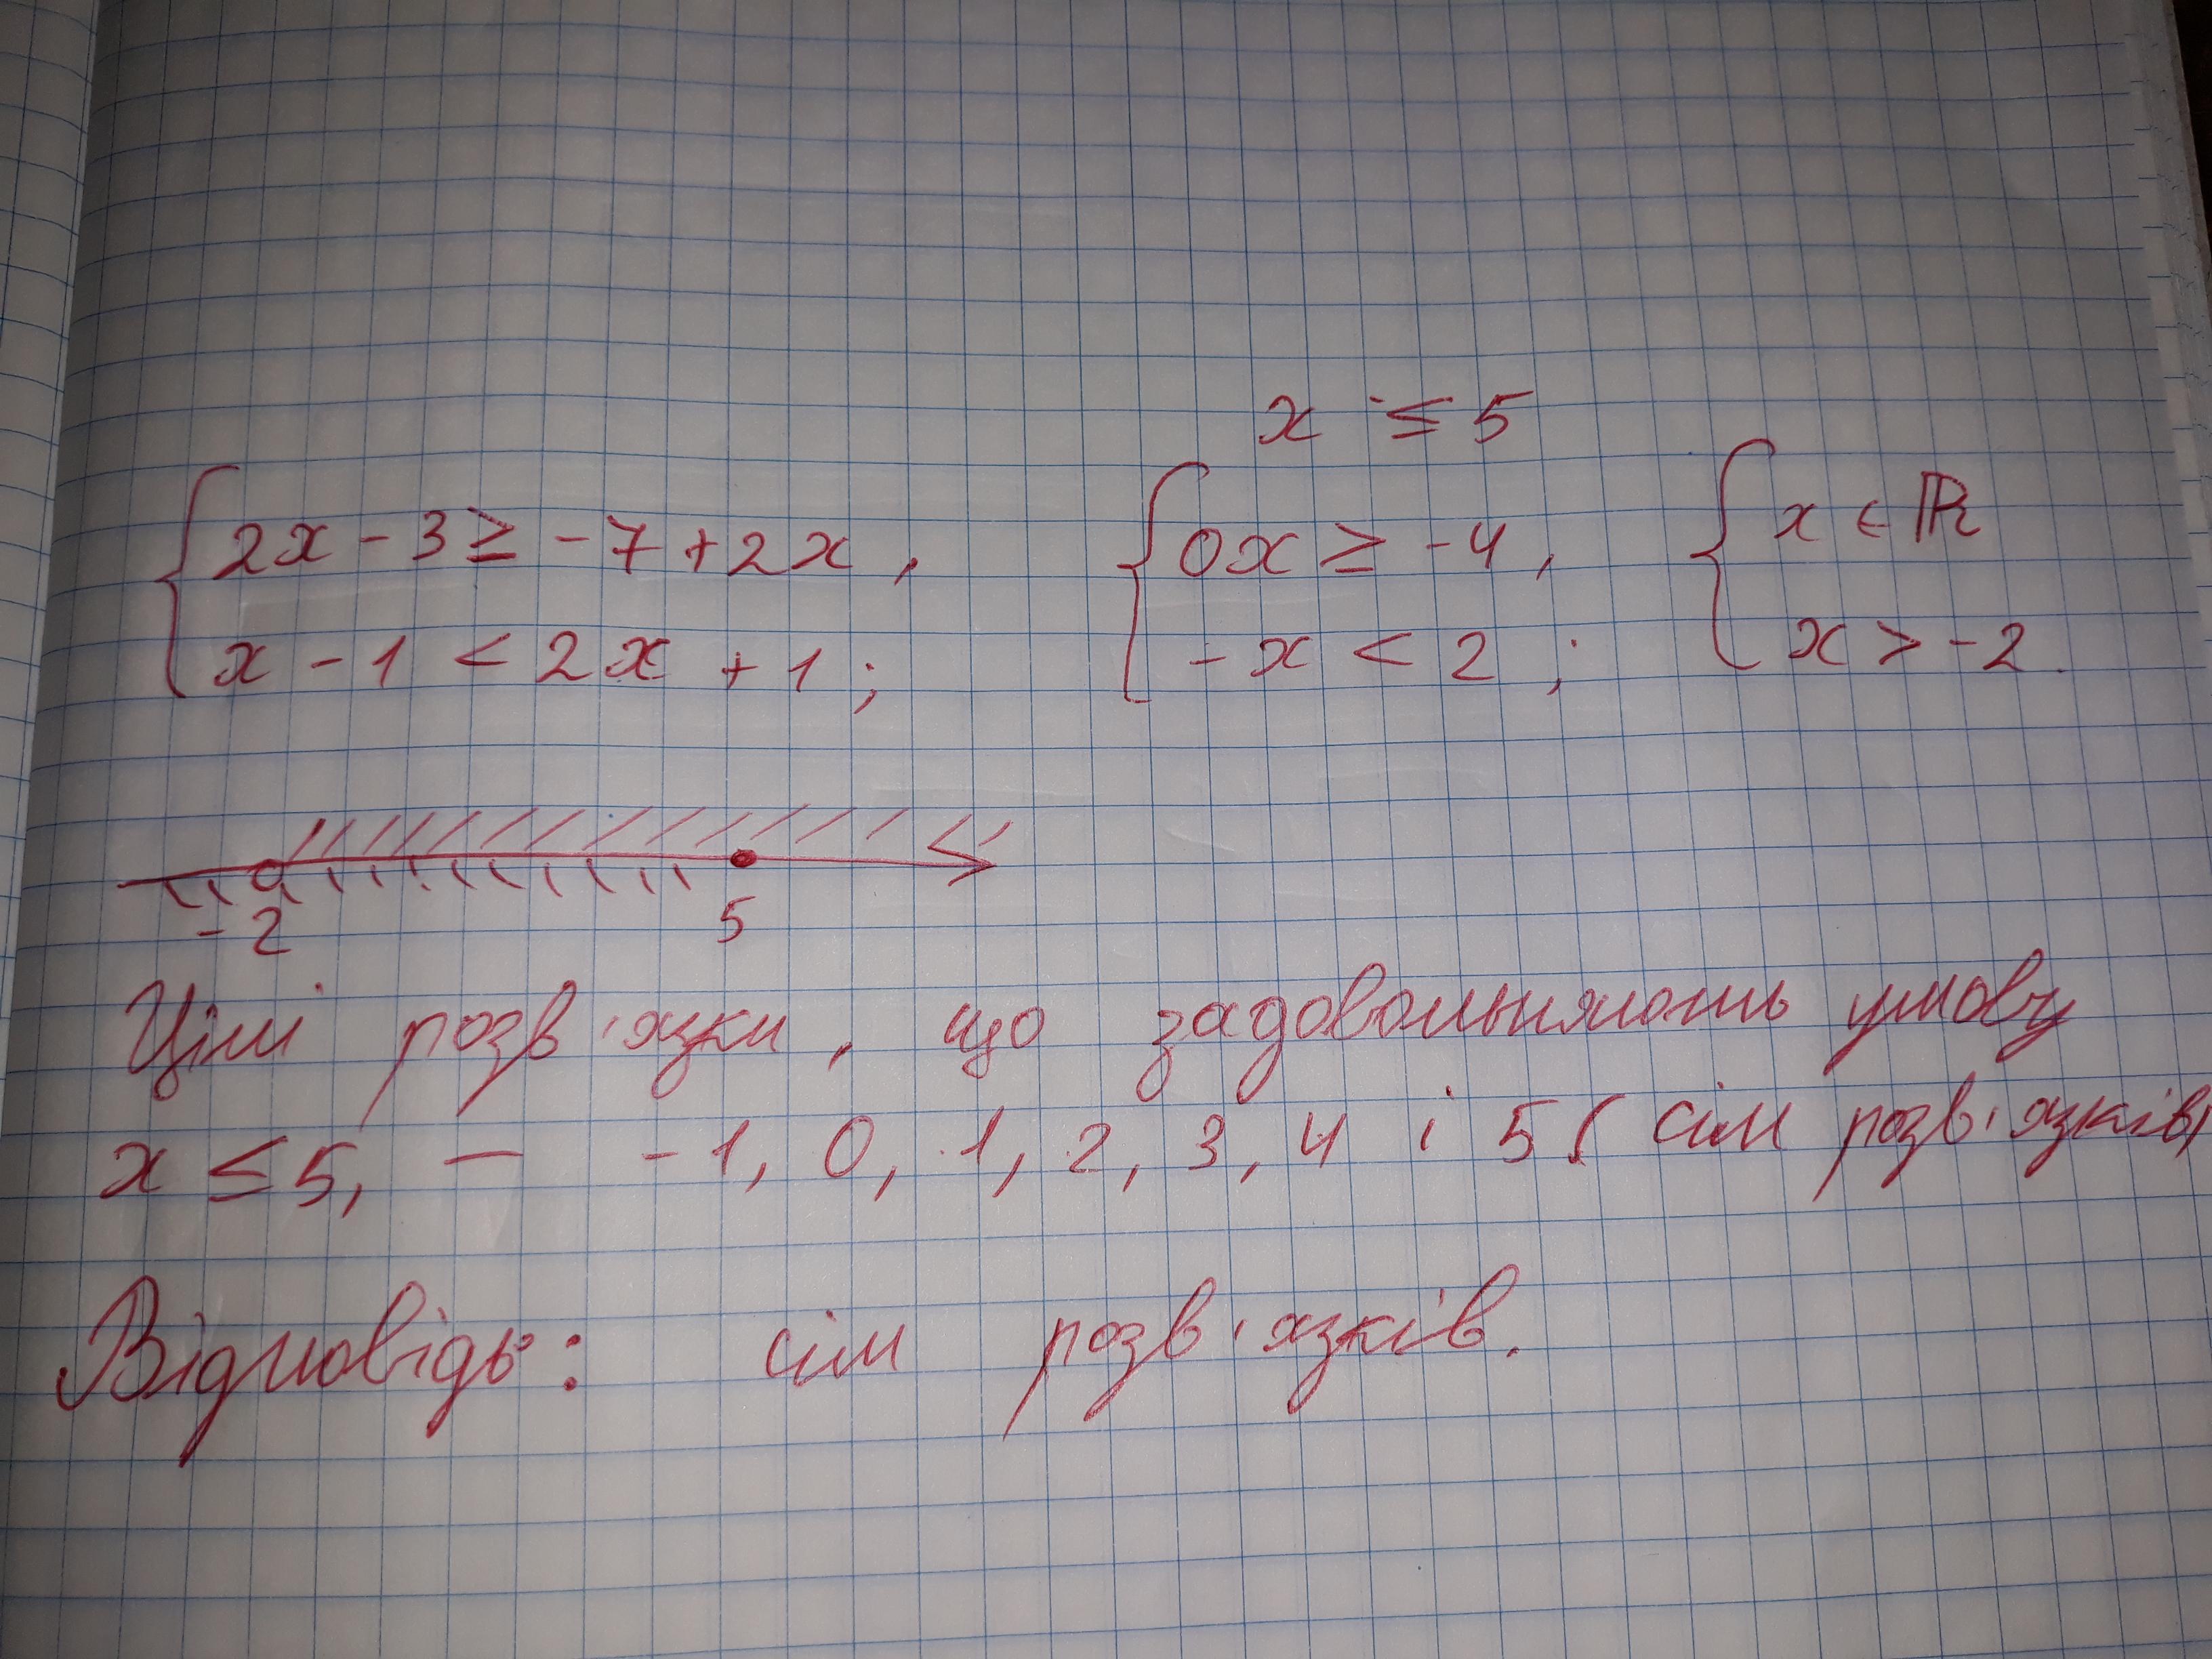 x ≤ 5
{ 2x - 3 ≥ -7 + 2x, { 0x ≥ -4, { x ∈ ℝ
x - 1 < 2x + 1; -x < 2; x > -2.
-2 5
Цілі розв'язки, що задовольняють умову
x ≤ 5, — -1, 0, 1, 2, 3, 4 і 5 (сім розв'язків)
Відповідь: сім розв'язків.